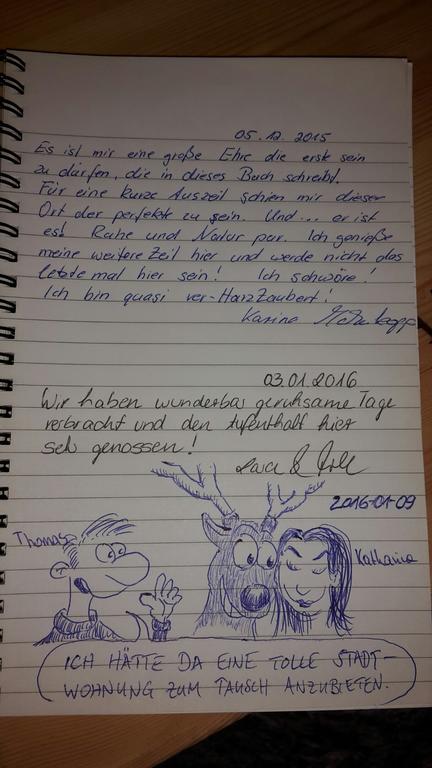 05.12.2015
Es ist mir eine große Ehre die erste sein
zu dürfen, die in dieses Buch schreibt.
Für eine kurze Auszeit schien mir dieser
Ort der perfekte zu sein. Und... er ist
es! Ruhe und Natur pur. Ich genieße
meine weitere Zeit hier und werde nicht das
letzte mal hier sein! Ich schwöre!
Ich bin quasi ver-HarzZaubert!
Karina
03.01.2016
Wir haben wunderbar geruhsame Tage
verbracht und den Aufenthalt hier
sehr genossen!
&
2016-01-09
Thomas
Katharina
ICH HÄTTE DA EINE TOLLE STADT-
WOHNUNG ZUM TAUSCH ANZUBIETEN.